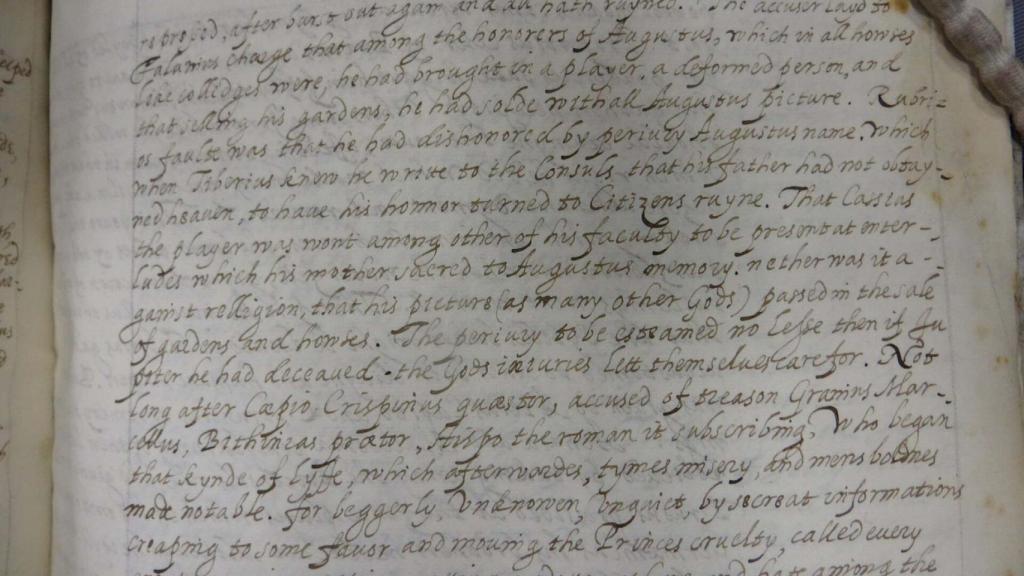 represed, after burst out again and all hath rayned. The accuser layd to
Falanius charge that among the honorers of Augustus, which in all howses
like colledges were, he had brought in a player, a deformed person, and
that selling his gardens, he had solde withall Augustus picture. Rubri=
os faulte was that he had dishonored by periury Augustus name. Which
when Tiberius knew he wrote to the Consuls that his father had not obtay-
ned heaven, to have his honnor turned to Citizens ruyne. That Cassius
the player was wont among other of his faculty to be present at enter-
ludes which his mother sacred to Augustus memory. nether was it a-
gainst relligion, that his picture (as many other Gods) passed in the sale
of gardens and howses. The periury to be esteamed no lesse then if Ju
piter he had deceaved. the Gods iniuries lett themselves care for. Not
long after Cæpio Crispinus quæstor, accused of treason Granius Mar-
cellus, Bithineas prætor, Hispo the roman it subscribing, Who began
that kynde of lyffe, which afterwardes, tymes misery, and mens boldnes
made notable. for beggerly, Unknowen, Unquiet, by secreat informations
creaping to some favor and moving the Princes cruelty, called every
and hate among the